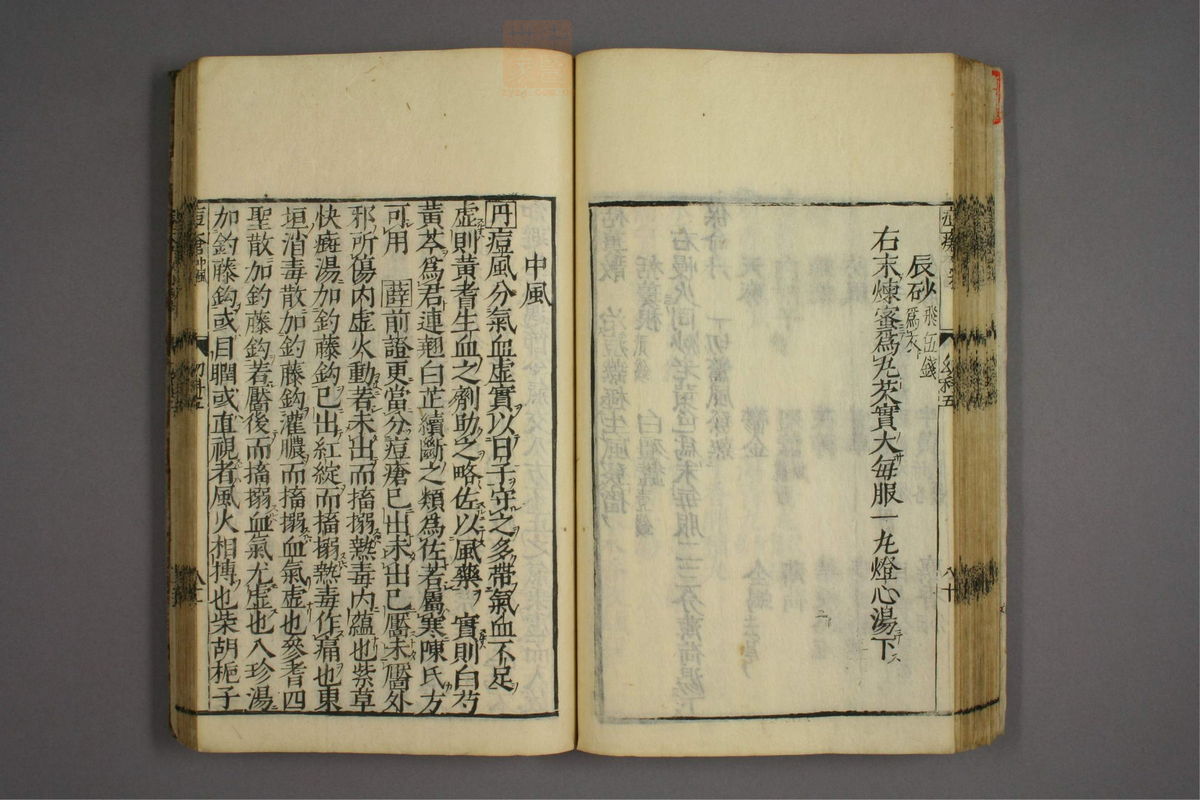 辰砂飛伍錢爲衣
右末煉蜜爲丸芡實大每服一丸燈心湯下
中風
丹痘風分氣血虛實以日子守之多帶氣血不足
虛則黃耆生血之劑助之略佐以風藥實則白芍
黃芩爲君連翹白芷續斷之類爲佐若屬寒陳氏方
可用薛前證更當分痘瘡已出未出已靨未靨外
邪所傷內虛火動若未出而搐搦熱毒內蘊也紫草
快癍湯加釣藤鈎已出紅綻而搐搦熱毒作痛也東
垣消毒散加釣藤鈎灌膿而搐搦血氣虛也參耆四
聖散加釣藤鈎若靨後而搐搦血氣尤虛也八珍湯
加釣藤鈎或目瞤或直視者風火相搏也柴胡梔子
痘瘡中風